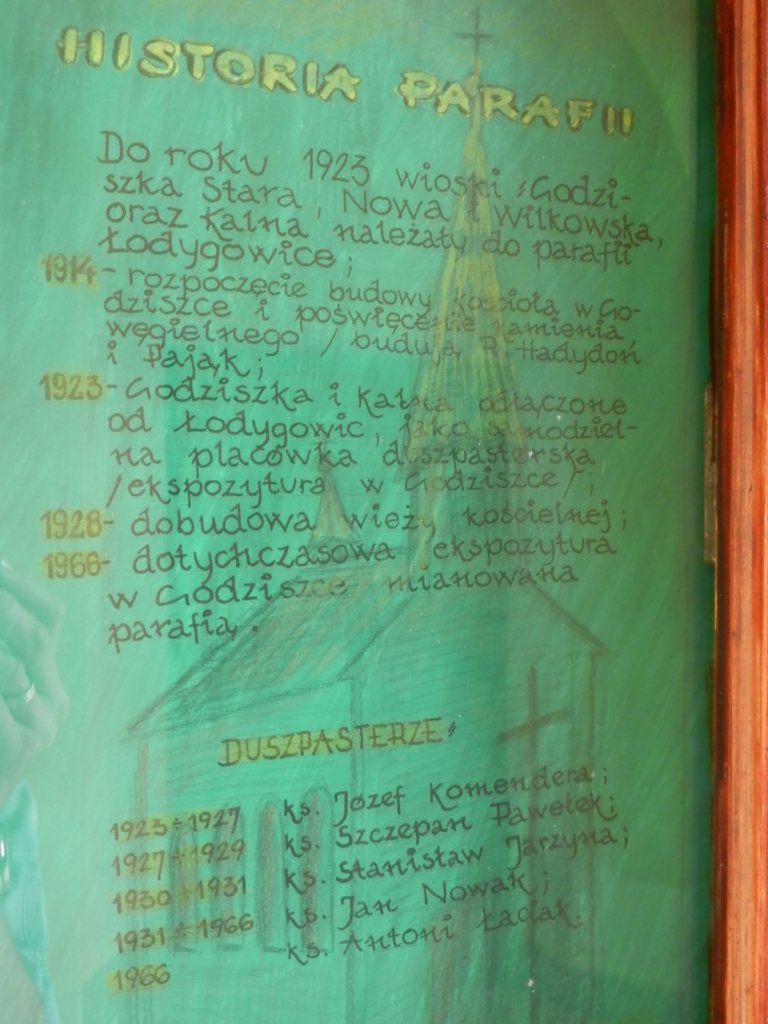 HISTORIA PARAFII
Do roku 1923 wioski : Godzi-
szka Stara, Nowa i Wilkowska,
oraz Kalna, należały do parafii
Łodygowice ;
1914 - rozpoczęcie budowy kościoła w Go-
dziszce i poświęcenie kamienia
węgielnego / budują R. Hadydoń
i Pająk ;
1923 - Godziszka i Kalna odłączone
od Łodygowic, jako samodziel-
na placówka duszpasterska
/ekspozytura w Godziszce/ ;
1928 - dobudowa wieży kościelnej ;
1966 - dotychczasowa ekspozytura
w Godziszce mianowana
parafią .
DUSZPASTERZE :
1923 ÷ 1927 ks. Józef Komendera ;
1927 ÷ 1929 ks. Szczepan Pawełek ;
1930 ÷ 1931 ks. Stanisław Jarzyna ;
1931 ÷ 1966 ks. Jan Nowak ;
1966 ks. Antoni Łaciak.